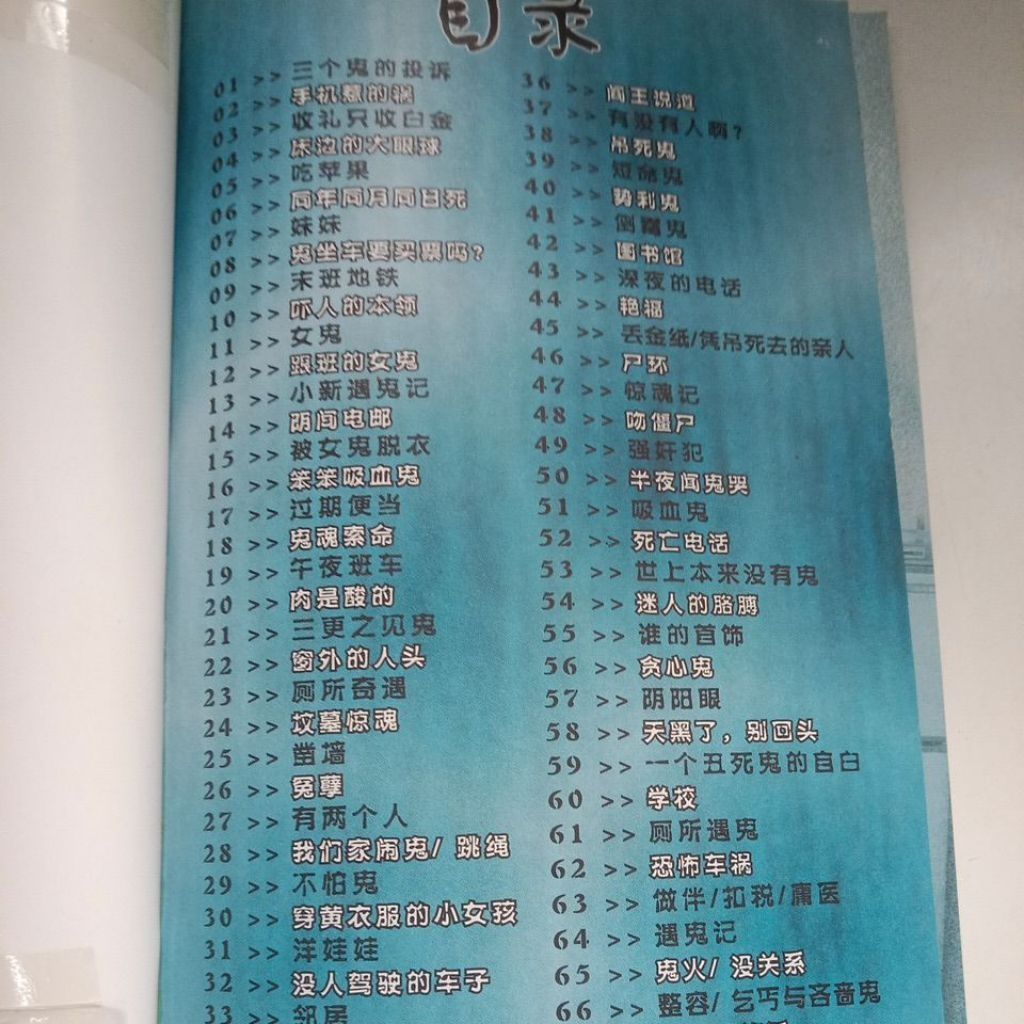 目录
01 >> 三个鬼的投诉
02 >> 手机惹的祸
03 >> 收礼只收白金
04 >> 床边的大眼球
05 >> 吃苹果
06 >> 同年同月同日死
07 >> 妹妹
08 >> 鬼坐车要买票吗？
09 >> 末班地铁
10 >> 吓人的本领
11 >> 女鬼
12 >> 跟班的女鬼
13 >> 小新遇鬼记
14 >> 阴间电邮
15 >> 被女鬼脱衣
16 >> 笨笨吸血鬼
17 >> 过期便当
18 >> 鬼魂索命
19 >> 午夜班车
20 >> 肉是酸的
21 >> 三更之见鬼
22 >> 窗外的人头
23 >> 厕所奇遇
24 >> 坟墓惊魂
25 >> 凿墙
26 >> 冤孽
27 >> 有两个人
28 >> 我们家闹鬼/ 跳绳
29 >> 不怕鬼
30 >> 穿黄衣服的小女孩
31 >> 洋娃娃
32 >> 没人驾驶的车子
33 >> 邻居
36 >> 阎王说道
37 >> 有没有人啊？
38 >> 吊死鬼
39 >> 短命鬼
40 >> 势利鬼
41 >> 倒霉鬼
42 >> 图书馆
43 >> 深夜的电话
44 >> 艳福
45 >> 丢金纸/凭吊死去的亲人
46 >> 尸环
47 >> 惊魂记
48 >> 吻僵尸
49 >> 强奸犯
50 >> 半夜闻鬼哭
51 >> 吸血鬼
52 >> 死亡电话
53 >> 世上本来没有鬼
54 >> 迷人的胳膊
55 >> 谁的首饰
56 >> 贪心鬼
57 >> 阴阳眼
58 >> 天黑了，别回头
59 >> 一个丑死鬼的自白
60 >> 学校
61 >> 厕所遇鬼
62 >> 恐怖车祸
63 >> 做伴/扣税/庸医
64 >> 遇鬼记
65 >> 鬼火/ 没关系
66 >> 整容/ 乞丐与吝啬鬼